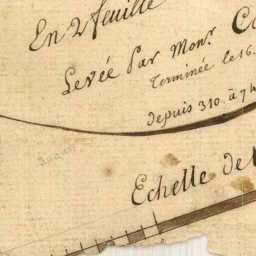 En 2 feuille
Levée Par Monr. C
Terminée le 16.
depuis 310. à 74
Echelle de